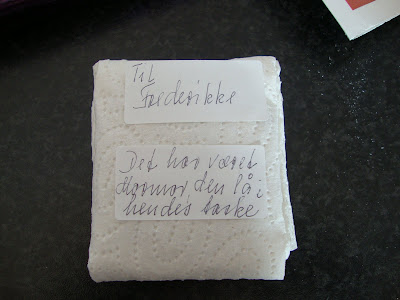 Til
Frederikke
Det har været
Mormor den lå i
hendes taske